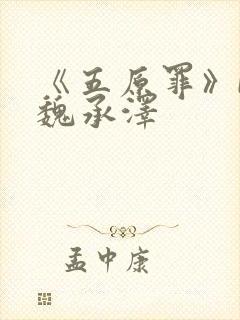 《五原罪》
魏承泽
孟中康